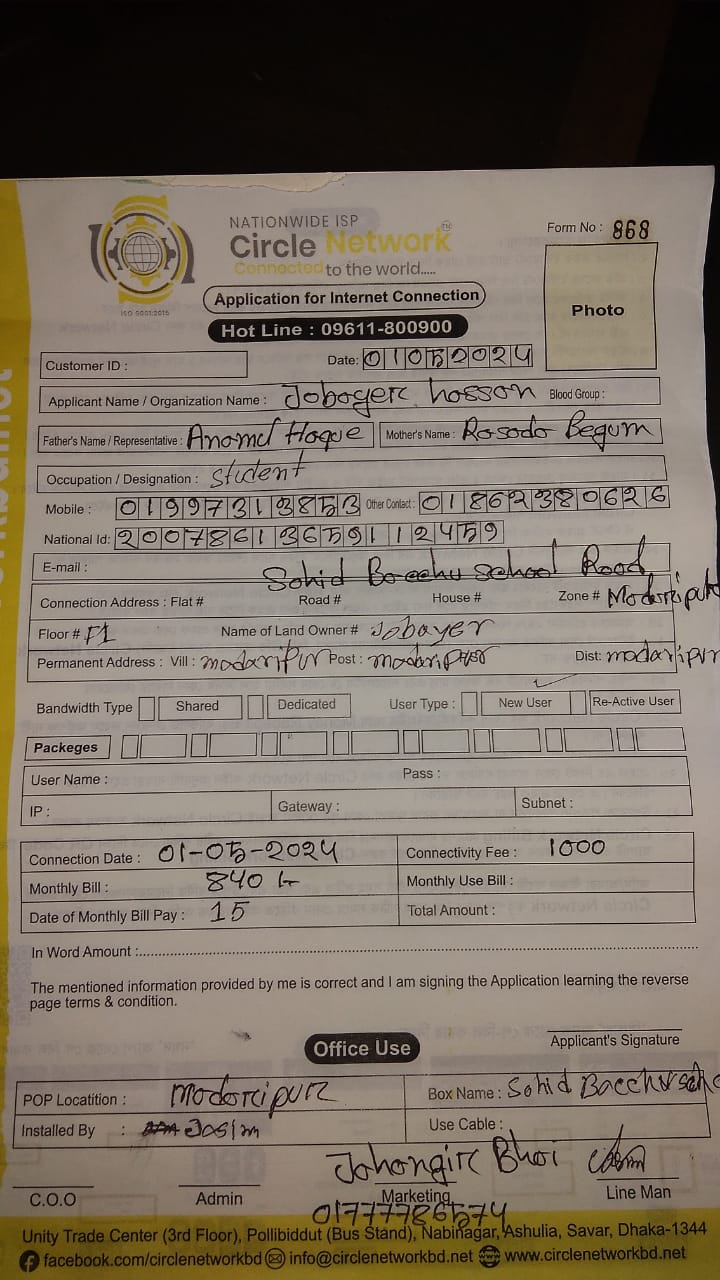 NATIONWIDE ISP
Circle Network TM
Connected to the world.....
ISO 9001:2015
Form No : 868
Photo
Application for Internet Connection
Hot Line : 09611-800900
Customer ID :
Date: 01052024
Applicant Name / Organization Name : Jobayer hosson Blood Group :
Father's Name / Representative : Anamul Hoque Mother's Name : Rosodo Begum
Occupation / Designation : Student
Mobile : 01997313853 Other Contact : 01862380626
National Id: 20078613659112459
E-mail :
Sohid Bacchu school Road
Connection Address : Flat # Road # House # Zone # Modaripur
Floor # F1 Name of Land Owner # Jobayer
Permanent Address : Vill : madaripur Post : madaripur Dist: madaripur
Bandwidth Type Shared Dedicated User Type : New User Re-Active User
Packeges
User Name : Pass :
IP : Gateway : Subnet :
Connection Date : 01-05-2024 Connectivity Fee : 1000
Monthly Bill : 840 Monthly Use Bill :
Date of Monthly Bill Pay : 15 Total Amount :
In Word Amount :
The mentioned information provided by me is correct and I am signing the Application learning the reverse
page terms & condition.
Applicant's Signature
Office Use
POP Locatition : Modaripur Box Name : Sohid Bacchu sch
Installed By : Jasim Use Cable :
Johongir Bhai
C.O.O Admin Marketing Line Man
01777786574
Unity Trade Center (3rd Floor), Pollibiddut (Bus Stand), Nabinagar, Ashulia, Savar, Dhaka-1344
facebook.com/circlenetworkbd info@circlenetworkbd.net www.circlenetworkbd.net